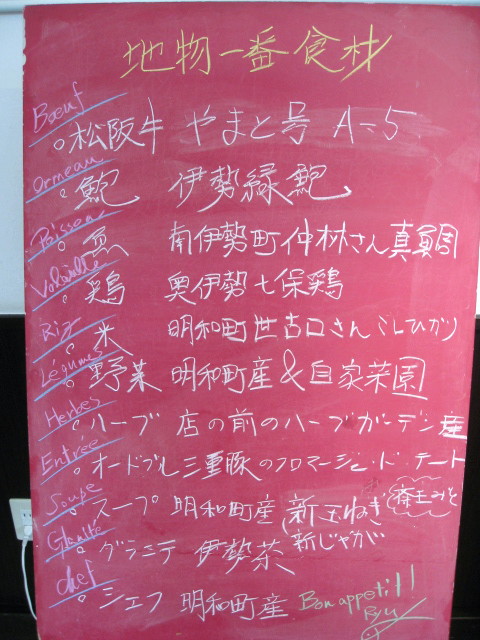 地物一番食材
Bœuf
○松阪牛 やまと号 A=5
Ormeau
○鮑 伊勢緑鮑
Poisson
○魚 南伊勢町仲林さん真鯛
Volaille
○鶏 奥伊勢七保鶏
Riz
○米 明和町世古口さんこしひかり
Légumes
○野菜 明和町産&自家菜園
Herbes
○ハーブ 店の前のハーブガーデン産
Entrée
○オードブル 三重豚のフロマージュ・ド・テート
Soupe
○スープ 明和町産 新玉ねぎ
新じゃが
Granité
○グラニテ 伊勢茶
chef
○シェフ 明和町産 Bon appetit!
Ryu